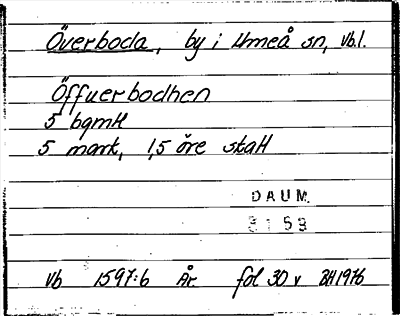 Överboda, by i Umeå sn, Vb.l.
Öffuerbodhen
5 bgmtl
5 mark, 1,5 öre skatt
DAUM
8159
Vb 1597:6 År fol 30 v BH 1976